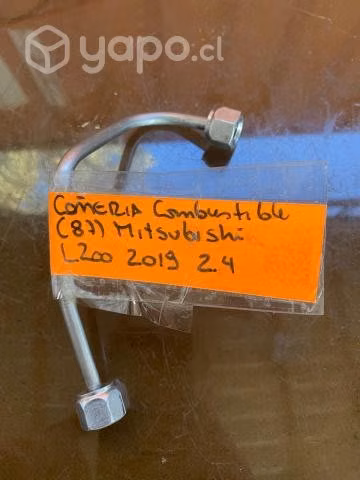 yapo.cl
COÑERIA Combustible
(87) Mitsubishi
L200 2019 2.4